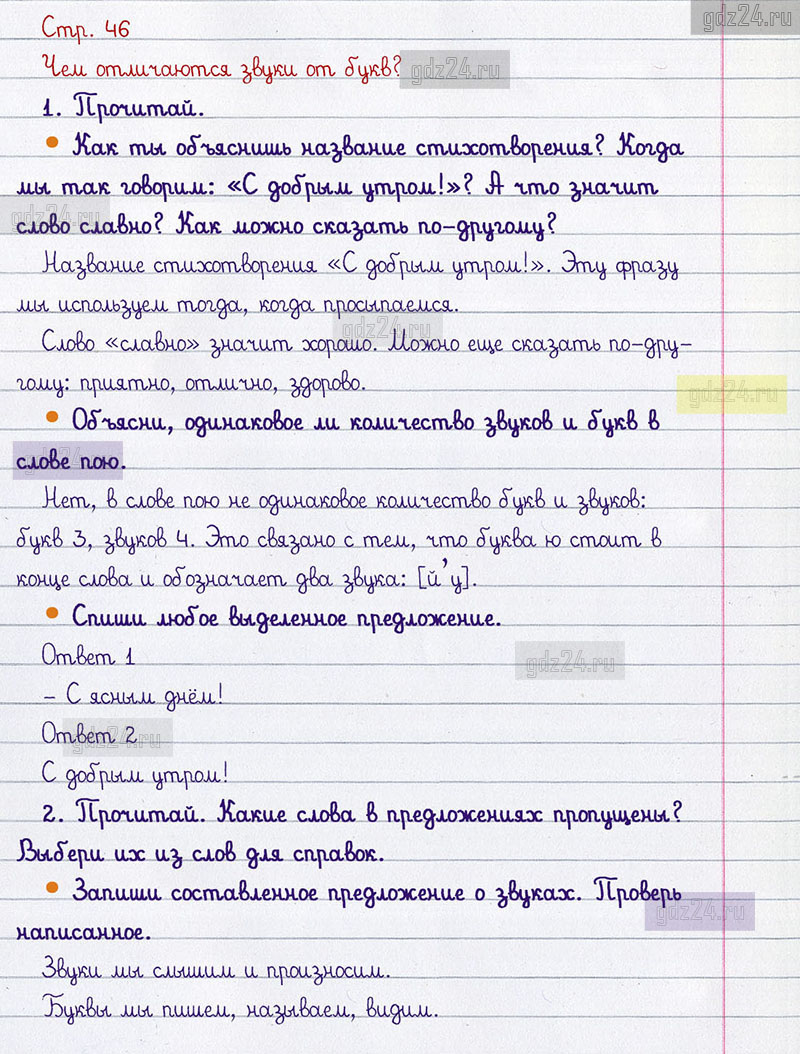 gdz24.ru
Стр. 46
Чем отличаются звуки от букв?
gdz24.ru
1. Прочитай.
• Как ты объяснишь название стихотворения? Когда
мы так говорим: «С добрым утром!»? А что значит
gdz24.ru
слово славно? Как можно сказать по-другому?
Название стихотворения «С добрым утром!». Эту фразу
мы используем тогда, когда просыпаемся.
gdz24.ru
Слово «славно» значит хорошо. Можно еще сказать по-дру-
гому: приятно, отлично, здорово.
gdz24.ru
• Объясни, одинаковое ли количество звуков и букв в
слове пою.
Нет, в слове пою не одинаковое количество букв и звуков:
букв 3, звуков 4. Это связано с тем, что буква ю стоит в
конце слова и обозначает два звука: [й'у].
• Спиши любое выделенное предложение.
Ответ 1
gdz24.ru
– С ясным днём!
Ответ 2
gdz24.ru
С добрым утром!
2. Прочитай. Какие слова в предложениях пропущены?
Выбери их из слов для справок.
• Запиши составленное предложение о звуках. Проверь
gdz24.ru
написанное.
Звуки мы слышим и произносим.
Буквы мы пишем, называем, видим.